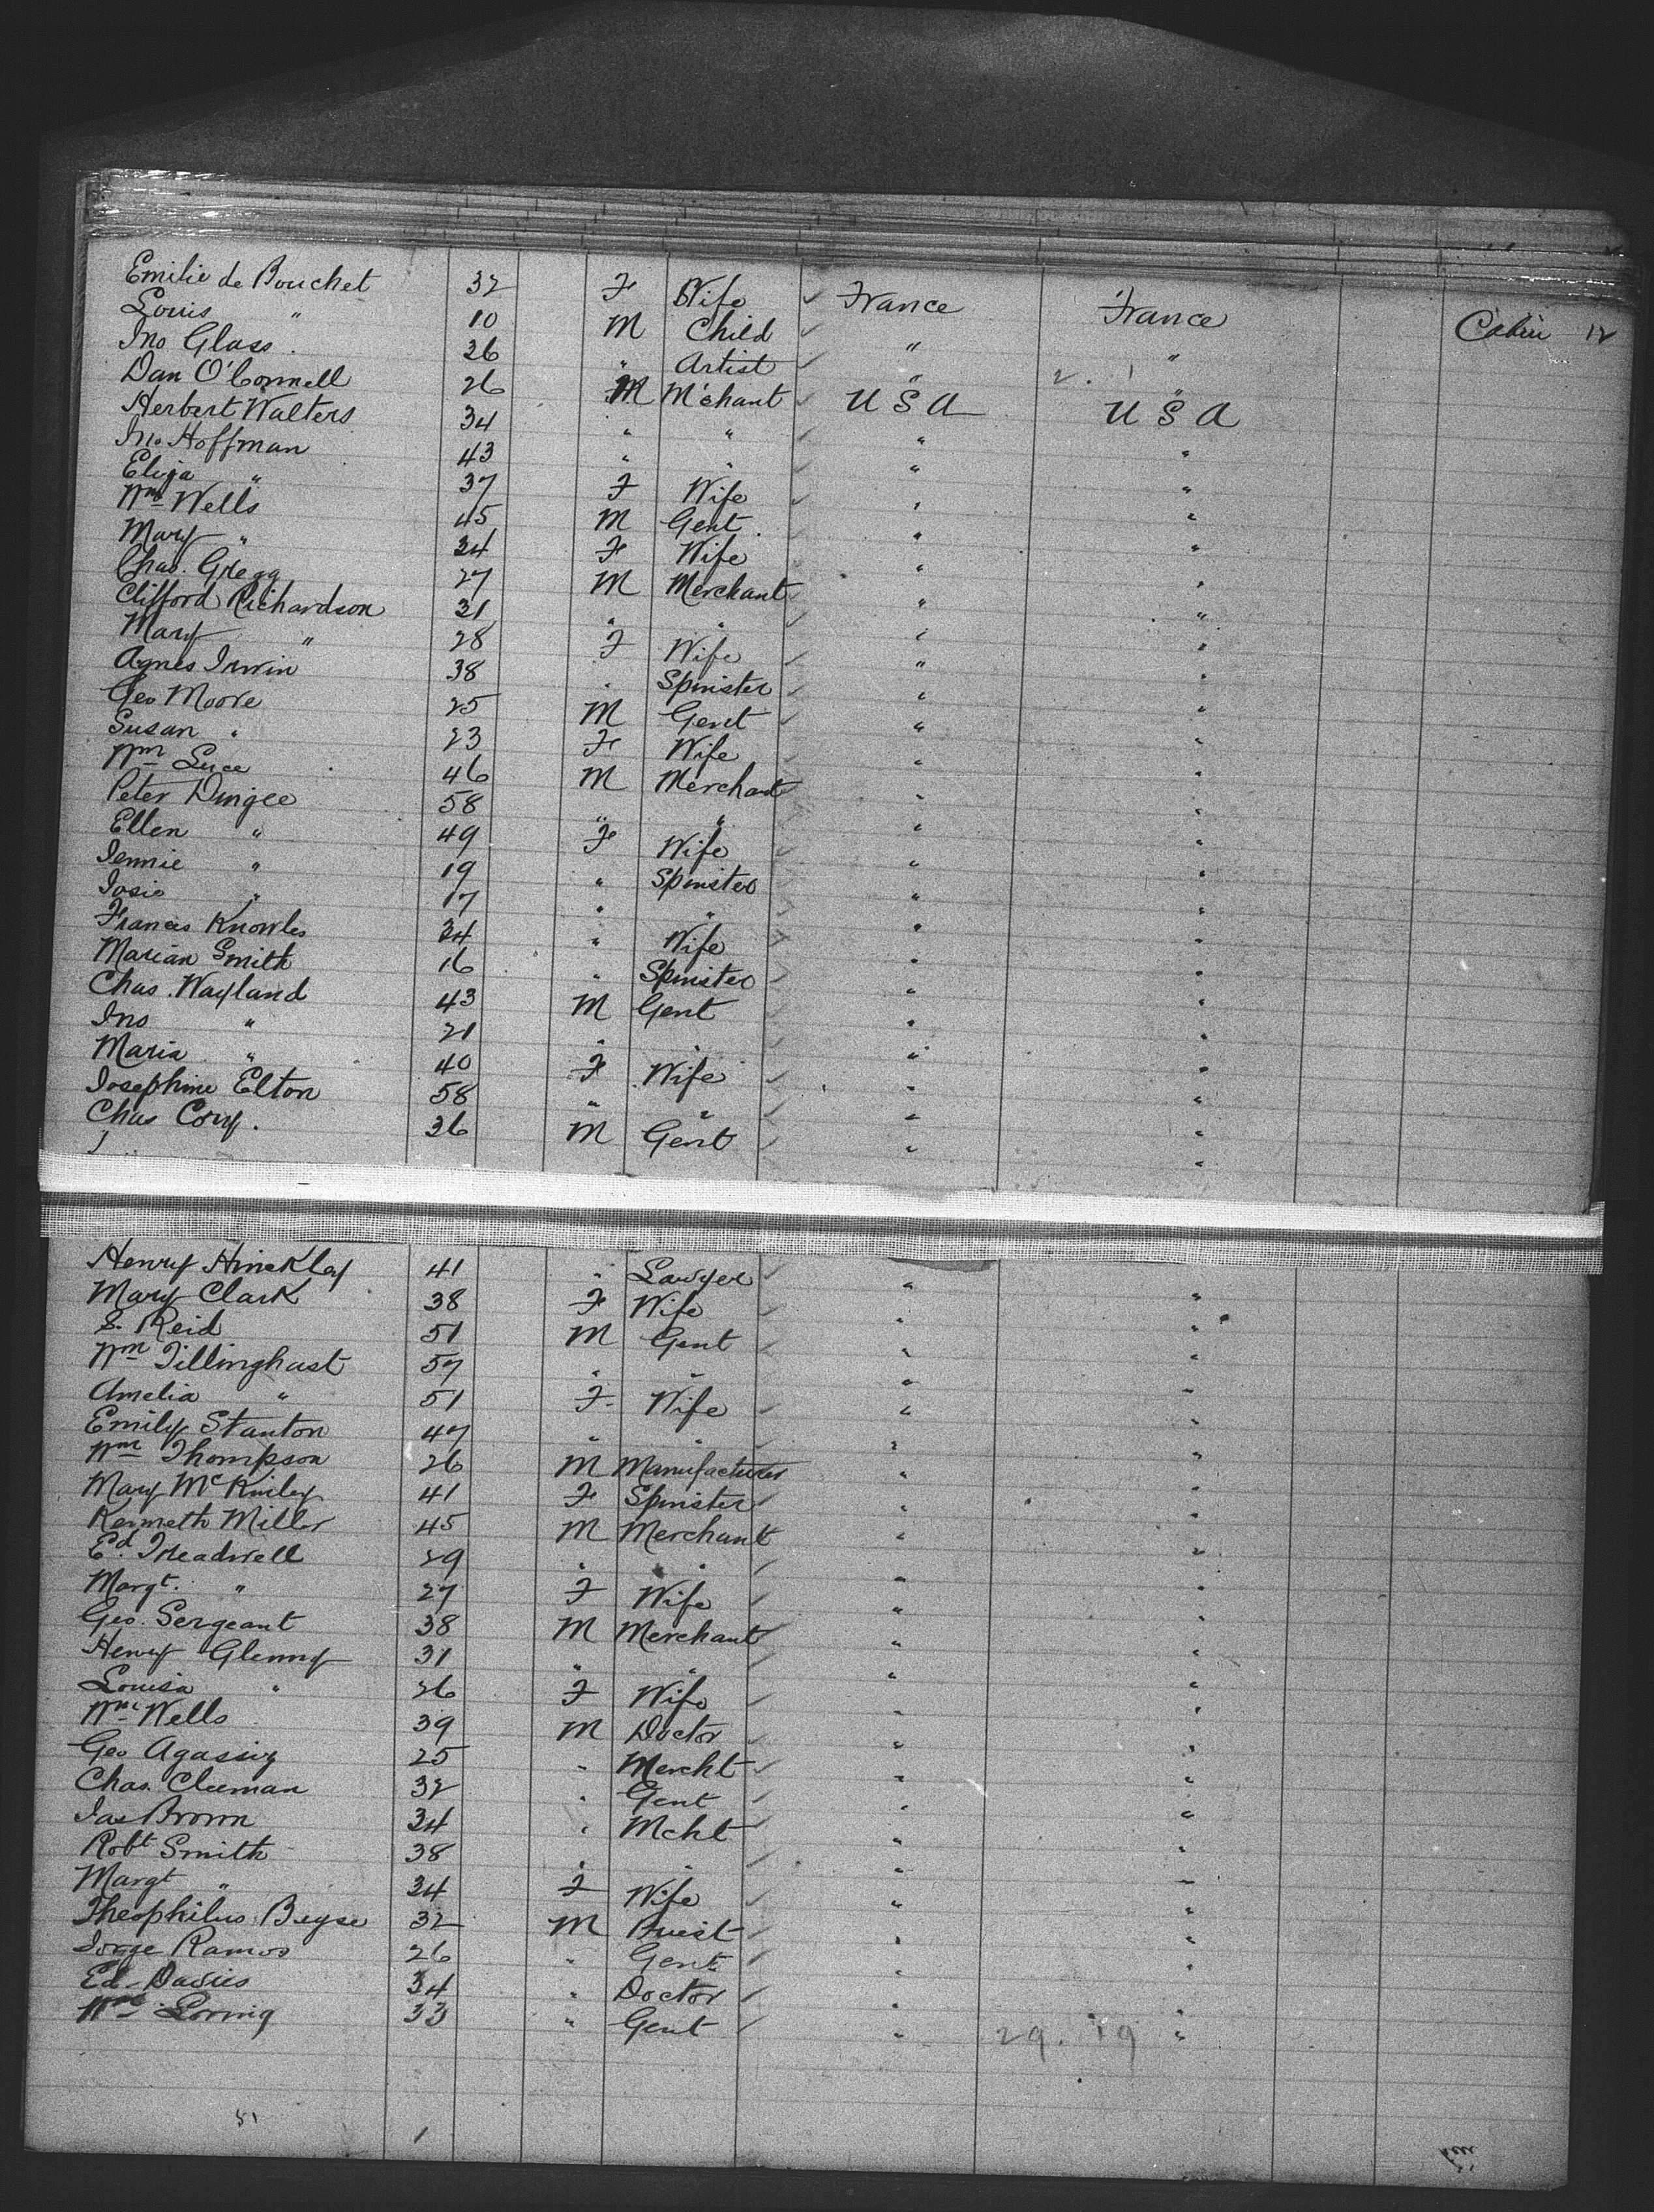 Emilie de Bouchet 32 F Wife ✓ France France Cabin 12
Louis " 10 M Child ✓ " "
Jno Glass. 36 " Artist ✓ " 2. 1 "
Dan O'Connell 26 M M'chant ✓ U S A U S A
Herbert Walters 34 " " ✓ " "
Jno Hoffman 43 " " ✓ " "
Eliza " 37 F Wife ✓ " "
Wm Wells 45 M Gent. ✓ " "
Mary " 34 F Wife ✓ " "
Chas. Gregg 27 M Merchant ✓ " "
Clifford Richardson 31 " " ✓ " "
Mary " 28 F Wife ✓ " "
Agnes Irwin 38 " Spinster ✓ " "
Geo Moore 25 M Gent ✓ " "
Susan " 23 F Wife ✓ " "
Wm Luce 46 M Merchant ✓ " "
Peter Dingee 58 " " ✓ " "
Ellen " 49 F Wife ✓ " "
Jennie " 19 " Spinster ✓ " "
Josie " 17 " " ✓ " "
Frances Knowles 34 " Wife ✓ " "
Marian Smith 16 " Spinster ✓ " "
Chas. Wayland 43 M Gent ✓ " "
Jno " 21 " " ✓ " "
Maria " 40 F Wife ✓ " "
Josephine Elton 58 " " ✓ " "
Chas Cory. 36 M Gent ✓ " "
Henry Hinckley 41 " Lawyer ✓ " "
Mary Clark 38 F Wife ✓ " "
S. Reid 51 M Gent ✓ " "
Wm Tillinghast 57 " " ✓ " "
Amelia " 51 F Wife ✓ " "
Emily Stanton 47 " " ✓ " "
Wm Thompson 26 M Manufacturer " "
Mary McKinley 41 F Spinster ✓ " "
Kenneth Miller 45 M Merchant ✓ " "
Ed. Treadwell 29 " " ✓ " "
Margt. " 27 F Wife ✓ " "
Geo. Sergeant 38 M Merchant ✓ " "
Henry Glenny 31 " " ✓ " "
Louisa " 26 F Wife ✓ " "
Wm Wells 39 M Doctor ✓ " "
Geo Agassiz 25 " Mercht ✓ " "
Chas. Cleeman 32 " Gent ✓ " "
Jas Brown 34 " Mcht ✓ " "
Robt Smith 38 " " ✓ " "
Margt " 34 F Wife ✓ " "
Theophilus Beyse 32 M Priest ✓ " "
Jorge Ramos 26 " Gent ✓ " "
Ed. Davies 34 " Doctor ✓ " "
Wm Loring 33 " Gent ✓ " 29. 19 "
51 1